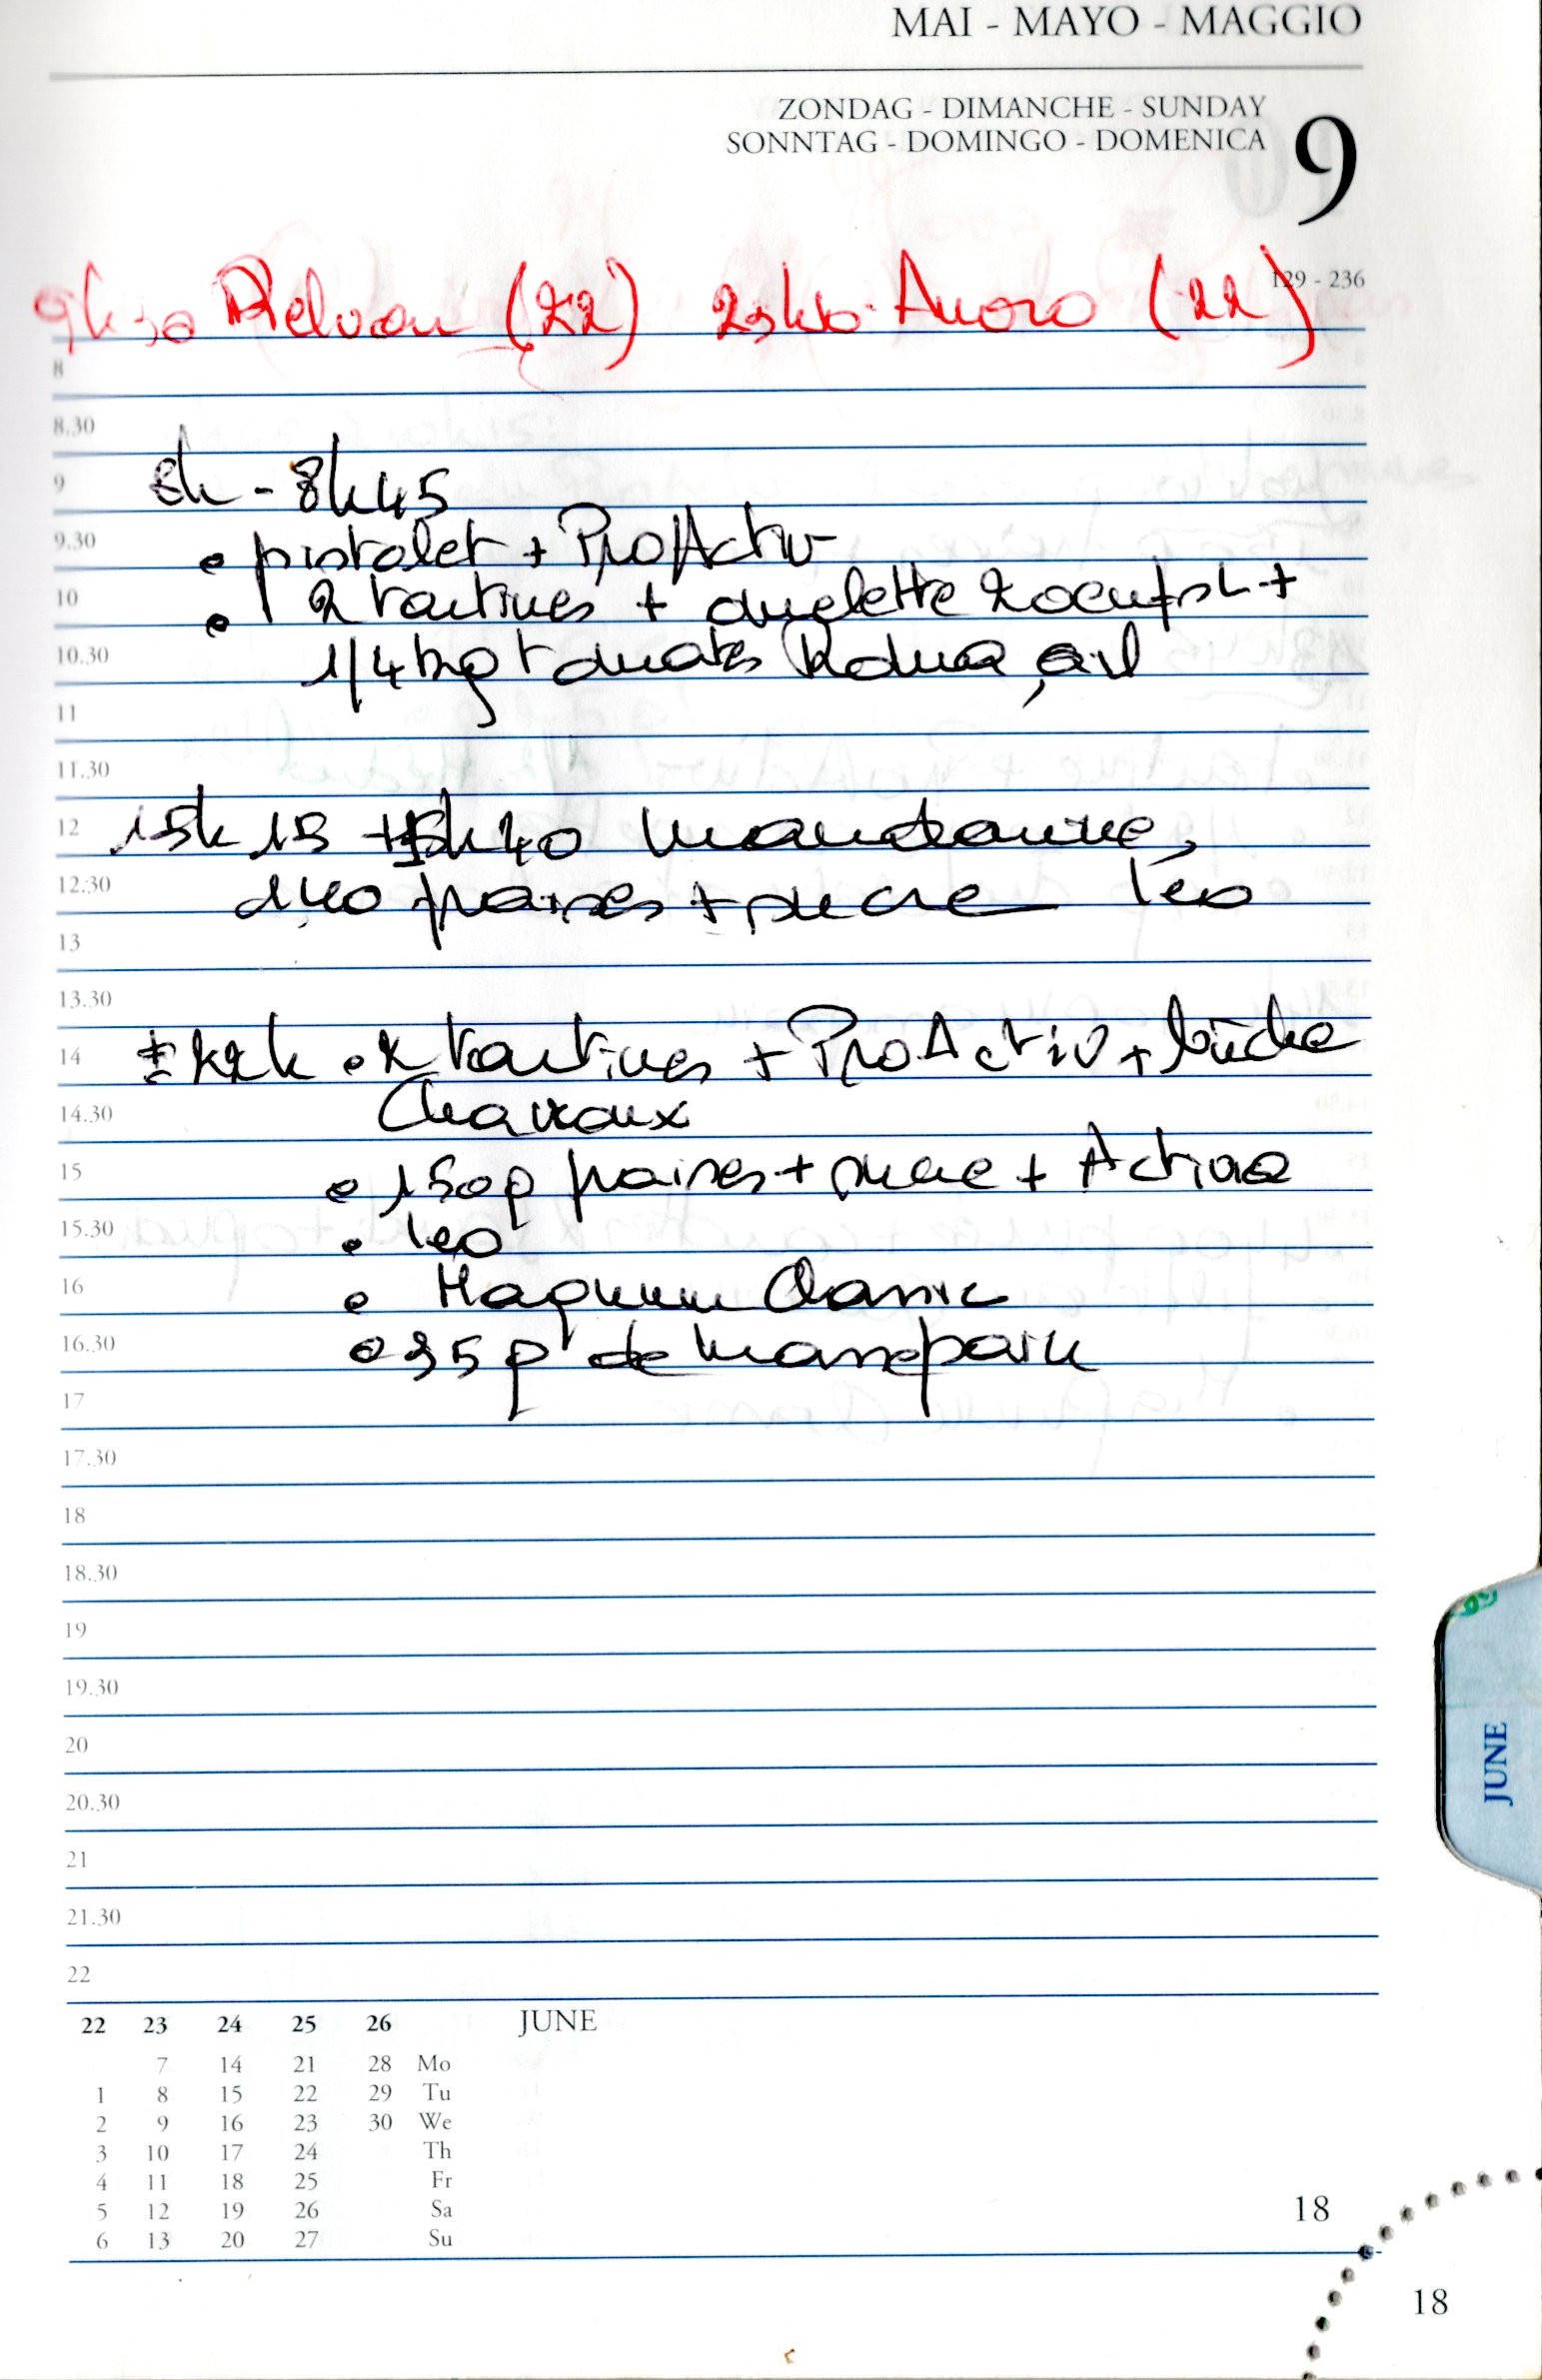 MAI - MAYO - MAGGIO
ZONDAG - DIMANCHE - SUNDAY
SONNTAG - DOMINGO - DOMENICA
9
129 - 236
9h30 (22) (22)
8
8.30
8h - 8h45
9
• pistolet + ProActiv
9.30
• 2 tartines + omelette 2 oeufs +
10
1/4 kg tomates Roma, ail
10.30
11
11.30
15h15 15h40 mandarine,
12
140 fraises + sucre leo
12.30
13
13.30
± 22h • 2 tartines + ProActiv + bûche
14
Chavroux
14.30
• 150g fraises + sucre + Activia
15
• leo
15.30
• Magnum Classic
16
• 35g de massepain
16.30
17
17.30
18
18.30
19
19.30
20
20.30
21
21.30
22
22 23 24 25 26 JUNE
7 14 21 28 Mo
1 8 15 22 29 Tu
2 9 16 23 30 We
3 10 17 24 Th
4 11 18 25 Fr
5 12 19 26 Sa
6 13 20 27 Su
18
18
JUNE